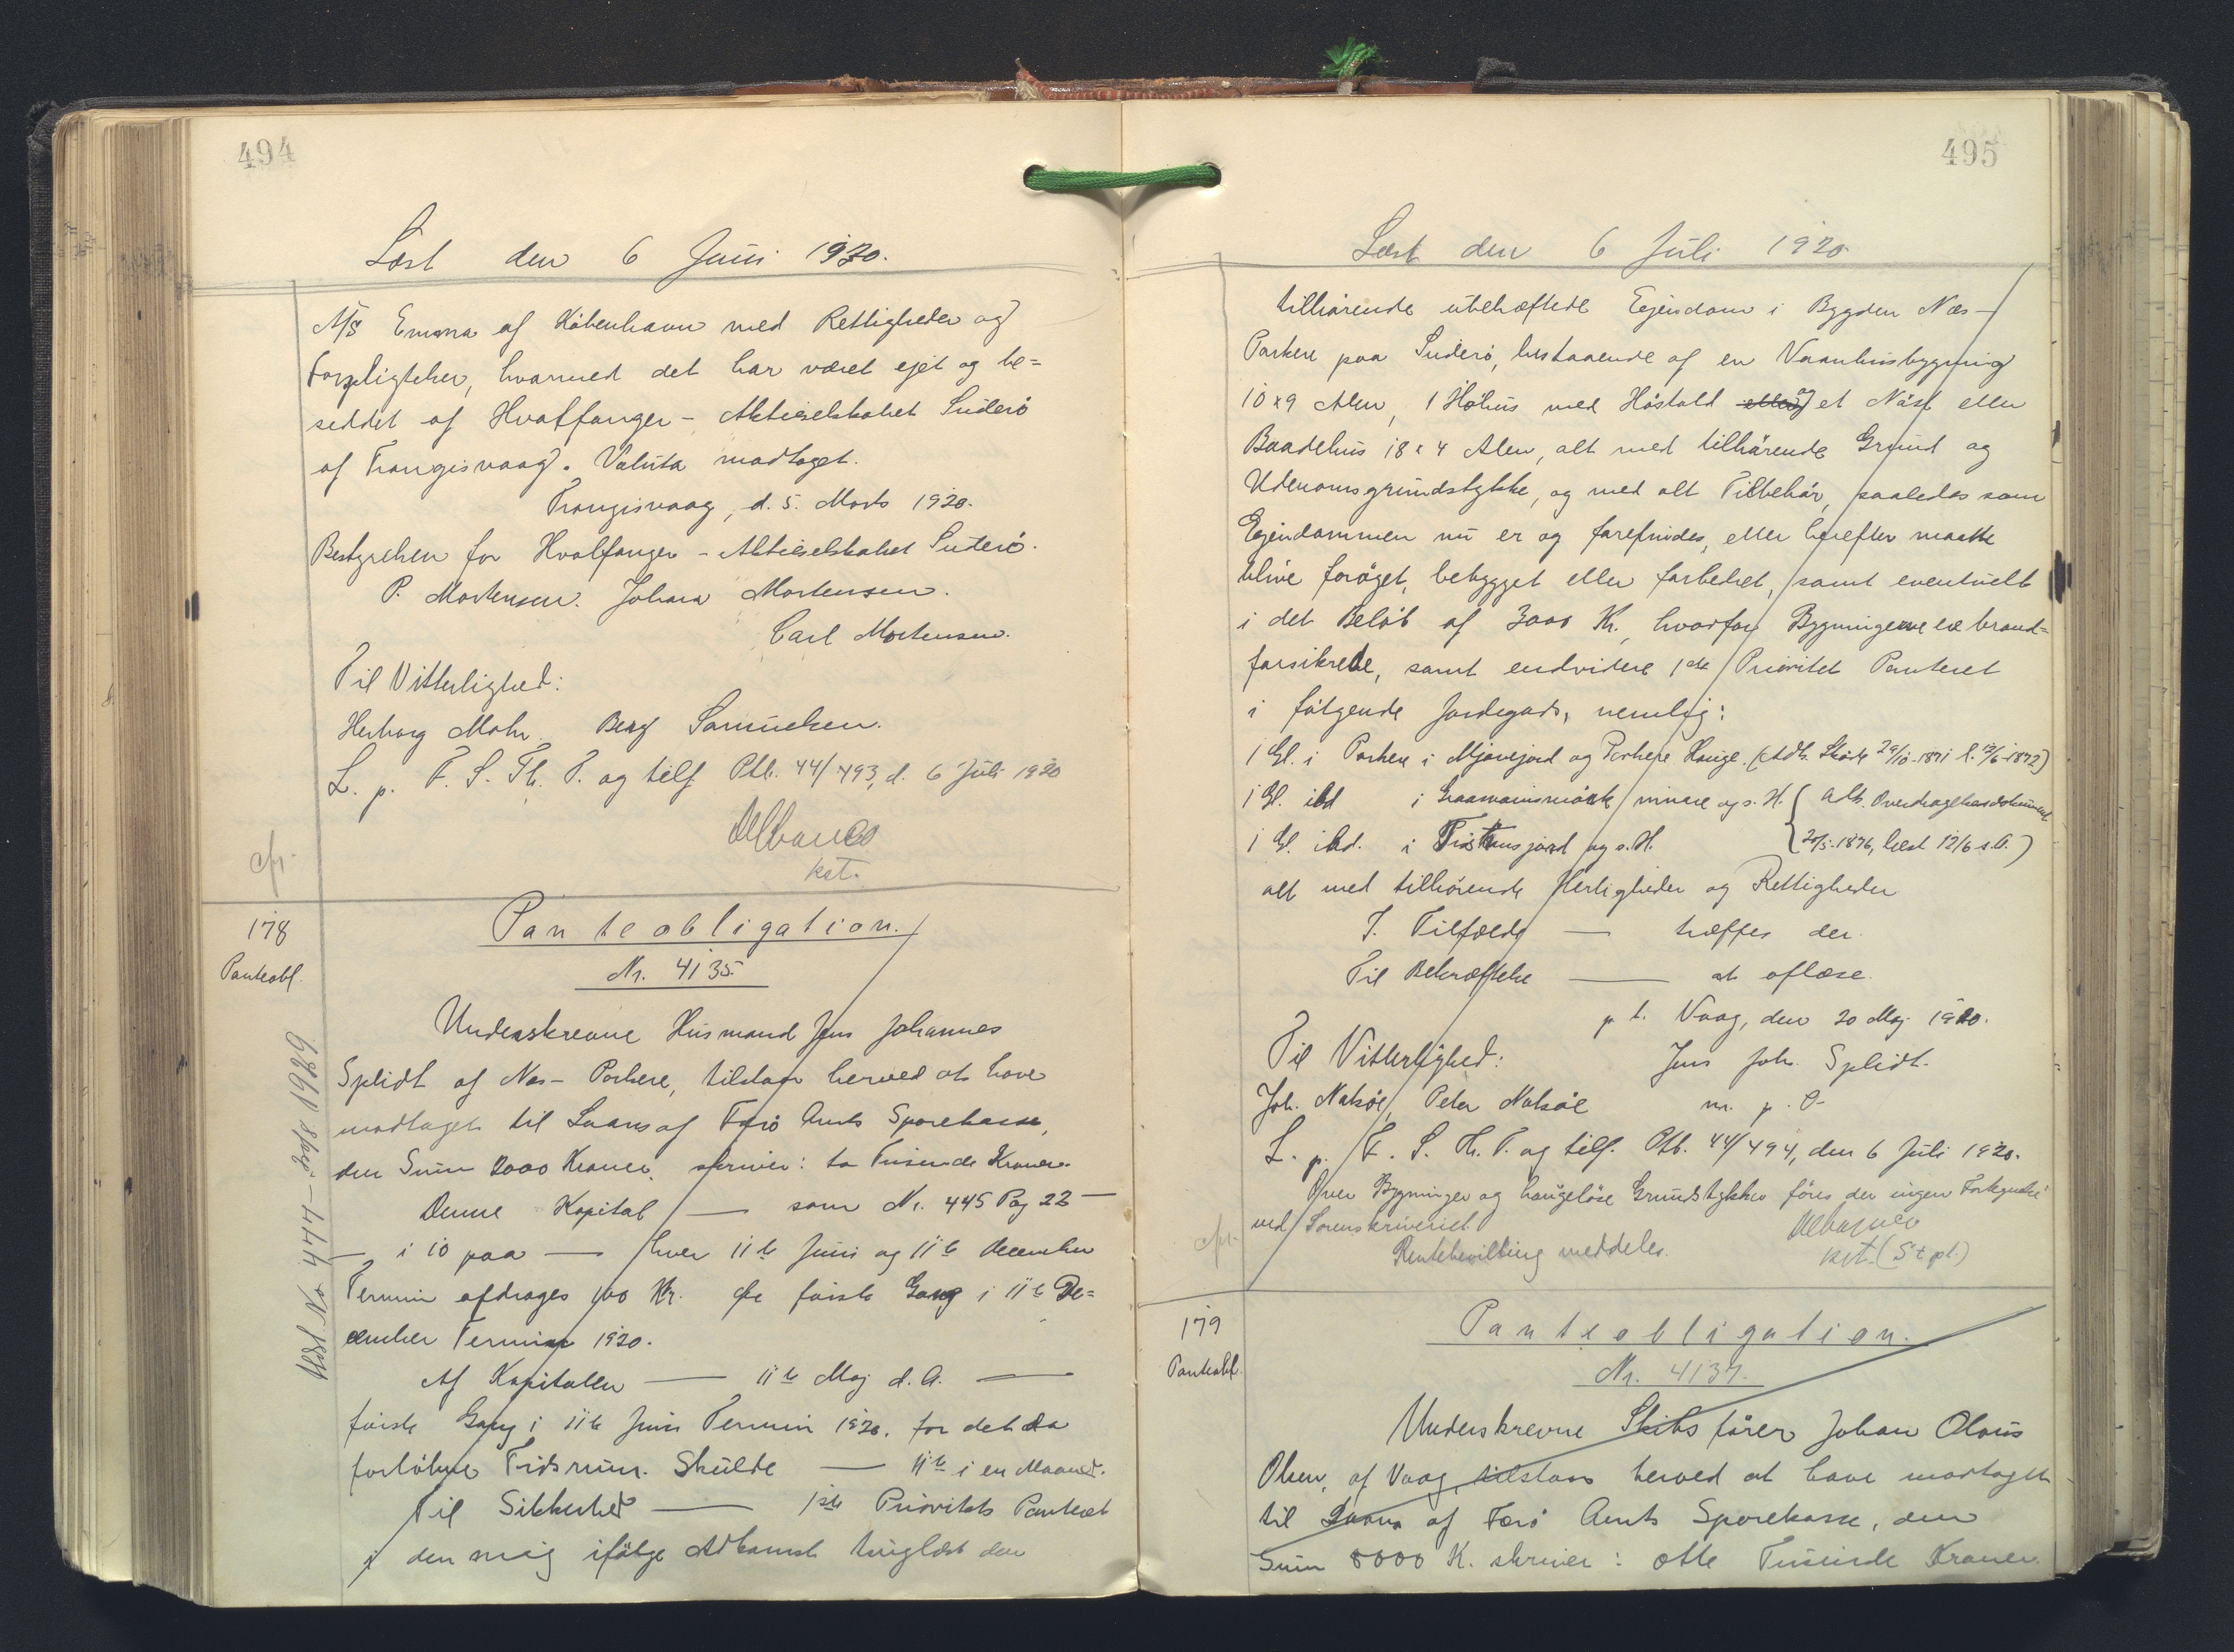 494
Læst den 6 Juni 1920.
A/S Emma af Köbenhavn med Rettigheder og
Forpligtelser, hvormed det har været ejet og be=
siddet af Hvalfanger - Aktieselskabet Suderö
af Trangisvaag. Valuta modtaget.
Trangisvaag, d. 5. Marts 1920.
Bestyrelsen for Hvalfanger - Aktieselskabet Suderö.
P. Mortensen. Johan Mortensen.
Carl Mortensen.
Til Vitterlighed:
Herborg Mohr. Berg Samuelsen.
L. p. F. S. Th. P. og tilf Ptb. 44/493, d. 6 Juli 1920
kst.
cfr.
178
Panteobl.
Panteobligation.
Nr. 4135.
Underskrevne Husmand Jens Johannes
Splidt af Nes - Porkere, tilstaar herved at have
modtaget til Laans af Færö Amts Sparekasse,
den Sum 2000 Kroner, skriver: to Tusinde Kroner.
Denne Kapital — som Nr. 445 Pag 22 —
— i 10 paa — hver 11te Juni og 11te December
Termin afdrages 100 Kr. de förste Gang i 11te De=
cember Termin 1920.
Af Kapitalen — 11te Maj d. A. —
förste Gang i 11te Juni Termin 1920. for det da
forlöbne Tidsrum. Skulde — 11te i en Maaned.
Til Sikkerhed — 1ste Prioritets Panteret
i den mig ifölge Adkomst tinglæst den
Udsl. No 477 - 30/8 1929
495
Læst den 6 Juli 1920.
tilhörende ubehæftede Ejendom i Bygden Næs -
Porkere paa Suderö, bestaaende af en Vaanhusbygning
10 x 9 Alen, 1 Höhus med Höstald eller og et Nöst eller
Baadehus 18 x 4 Alen, alt med tilhörende Grund og
Udenomsgrundstykke, og med alt Tilbehör, saaledes som
Ejendommen nu er og forefindes, eller herefter maatte
blive foröget, bebygget eller forbedret, samt eventuelt
i det Belöb af 3000 Kr., hvorfor Bygningerne er brand=
forsikrede, samt endvidere 1ste Prioritet Panteret
i fölgende Jordegods, nemlig:
1 Gl. i Porkere i Mjavejord og Porkere Hauge. (Adk. Sköde 29/10-1871 l. 13/6-1872)
1 Gl. ibd i minare og s. H. ( Adk. Overdragelsesdokument
1 Gl. ibd. i og s. H. 20/5-1876, læst 12/6 s. A.)
alt med tilhörende Herligheder og Rettigheder
I. Tilfælde — træffes der.
Til Bekræftelse — at aflæse.
p. t. Vaag, den 20 Maj 1920.
Til Vitterlighed: Jens Joh. Splidt.
Joh. Nolsöe, Peter Nolsöe m. p. P.
L. p. F. S. Th. P. og tilf. Ptb. 44/494, den 6 Juli 1920.
Over Bygninger og haugelöse Grundstykker föres der ingen
ved Sorenskriveriet.
Rentebevilling meddeles.
kst. (St pl.)
cfr.
179
Panteobl.
Panteobligation.
Nr. 4137.
Underskrevne Skibsförer Johan Olaus
Olsen, af Vaag, tilstaar herved at have modtaget
til Laans af Færö Amts Sparekasse, den
Sum 8000 K. skriver: otte Tusinde Kroner.